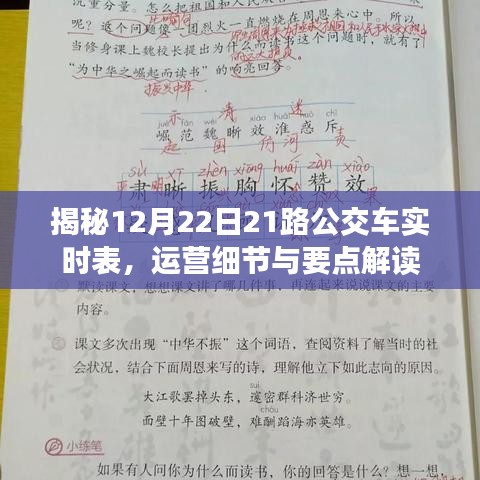 沉重分量。怎么把祖国和人民从
呢？这个问题像一团烈火一直燃烧在周恩来心中。所以，
当修身课上魏校长提出为什么而读书这个问题时，就有了
“为中华之崛起而读书”的响亮回答。
振兴中华
示 清 迷
jué fàn wèi xī xiào huái huò chì
崛范魏晰效淮惑斥
起 国 河 责
sù xī zhèn xiōng huái zàn xiào
肃晰振胸怀赞效
揭秘12月22日21路公交车实
时表，运营细节与要点解读
默读课文，想想课文讲了哪几件事，再连起来说说课文的主要
内容。
课文多次出现“中华不振”这个词语，查阅资料了解当时的社
会状况，结合下面周恩来写的诗，理解他立下如此志向的原因。
suì
大江歌罢掉头东，邃密群科济世穷。
chóu
面壁十年图破壁，难酬蹈海亦英雄。
小练笔
如果有人问你为什么而读书，你的回答是什么？想一想